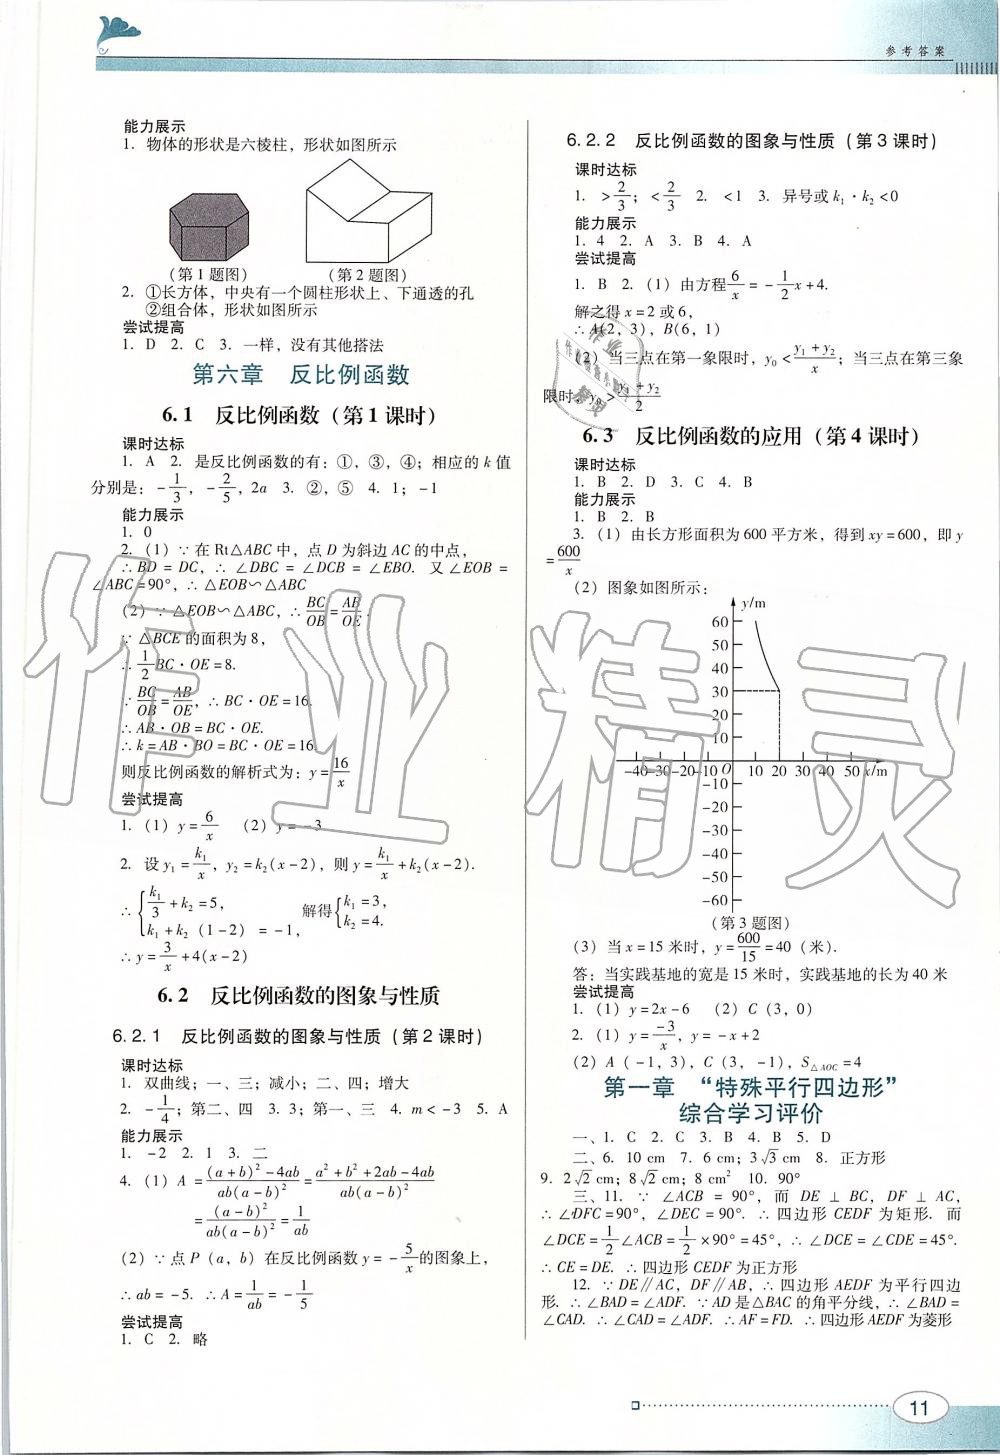 参考答案
能力展示
1. 物体的形状是六棱柱，形状如图所示
(第1题图) (第2题图)
2. ①长方体，中央有一个圆柱形状上、下通透的孔
②组合体，形状如图所示
尝试提高
1. D 2. C 3. 一样，没有其他搭法
第六章 反比例函数
6.1 反比例函数（第1课时）
课时达标
1. A 2. 是反比例函数的有：①，③，④；相应的k值
分别是：-1/3，-2/5，2a 3. ②，⑤ 4. 1；-1
能力展示
1. 0
2.（1）∵在Rt△ABC中，点D为斜边AC的中点，
∴BD=DC，∴∠DBC=∠DCB=∠EBO. 又∠EOB=
∠ABC=90°，∴△EOB∽△ABC
（2）∵△EOB∽△ABC，∴BC/OB=AB/OE.
∵△BCE的面积为8，
∴1/2 BC·OE=8.
∵BC/OB=AB/OE，∴BC·OE=16.
∴AB·OB=BC·OE.
∴k=AB·BO=BC·OE=16
则反比例函数的解析式为：y=16/x
尝试提高
1.（1）y=6/x （2）y=-3
2. 设y₁=k₁/x，y₂=k₂(x-2)，则y=k₁/x+k₂(x-2).
∴{k₁/3+k₂=5，k₁+k₂（1-2）=-1， 解得{k₁=3，k₂=4.
∴y=3/x+4(x-2)
6.2 反比例函数的图象与性质
6.2.1 反比例函数的图象与性质（第2课时）
课时达标
1. 双曲线；一、三；减小；二、四；增大
2. -1/4；第二、四 3. 3；第一、三 4. m<-3 5. A
能力展示
1. -2 2. 1 3. 二
4.（1）A=((a+b)²-4ab)/(ab(a-b)²)=(a²+b²+2ab-4ab)/(ab(a-b)²)
=(a-b)²/(ab(a-b)²)=1/ab
（2）∵点P（a，b）在反比例函数y=-5/x的图象上，
∴ab=-5. ∴A=1/ab=-1/5
尝试提高
1. C 2. 略
6.2.2 反比例函数的图象与性质（第3课时）
课时达标
1. >2/3；<2/3 2. <1 3. 异号或k₁·k₂<0
能力展示
1. 4 2. A 3. B 4. A
尝试提高
1. B 2.（1）由方程6/x=-1/2x+4.
解之得x=2或6，
∴A(2，3)，B(6，1)
（2）当三点在第一象限时，y₀<(y₁+y₂)/x；当三点在第三象
限时，y₀>(y₁+y₂)/2
6.3 反比例函数的应用（第4课时）
课时达标
1. B 2. D 3. C 4. B
能力展示
1. B 2. B
3.（1）由长方形面积为600平方米，得到xy=600，即y
=600/x
（2）图象如图所示：
y/m
60
50
40
30
20
10
-40-30-20-10 O 10 20 30 40 50 x/m
-10
-20
-30
-40
-50
-60
(第3题图)
（3）当x=15米时，y=600/15=40（米）.
答：当实践基地的宽是15米时，实践基地的长为40米
尝试提高
1.（1）y=2x-6 （2）C（3，0）
2.（1）y=-3/x，y=-x+2
（2）A（-1，3)，C（3，-1)，S△AOC=4
第一章 “特殊平行四边形”
综合学习评价
一、1. C 2. C 3. B 4. B 5. D
二、6. 10 cm 7. 6 cm；3√3 cm 8. 正方形
9. 2√2 cm；8√2 cm；8 cm² 10. 90°
三、11. ∵∠ACB=90°，而DE⊥BC，DF⊥AC，
∴∠DFC=90°，∠DEC=90°. ∴四边形CEDF为矩形. 而
∠DCE=1/2∠ACB=1/2×90°=45°，∴∠DCE=∠CDE=45°.
∴CE=DE. ∴四边形CEDF为正方形
12. ∵DE∥AC，DF∥AB，∴四边形AEDF为平行四边
形. ∴∠BAD=∠ADF. ∵AD是△BAC的角平分线，∴∠BAD=
∠CAD. ∴∠CAD=∠ADF. ∴AF=FD. ∴四边形AEDF为菱形
11
作业精灵